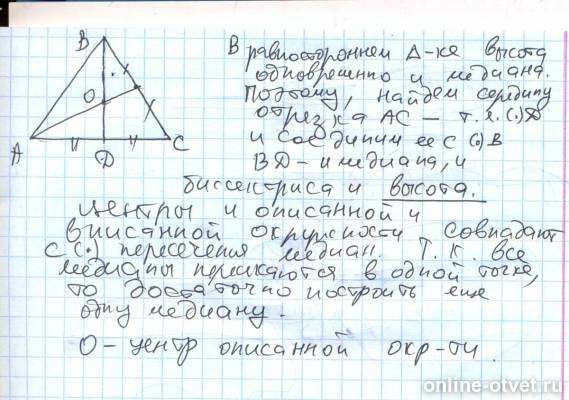 B
O
A
D
C
В равностороннем Δ-ке высота
одновременно и медиана.
Поэтому, найдем середину
отрезка AC — т.е. (·) D
и соединим ее с (·) B
BD – и медиана, и
биссектриса и высота.
Центры и описанной и
вписанной окружности совпадают
с (·) пересечения медиан. Т.к. все
медианы пересекаются в одной точке,
то достаточно построить еще
одну медиану.
O – центр описанной окр-ти.
online-otvet.ru